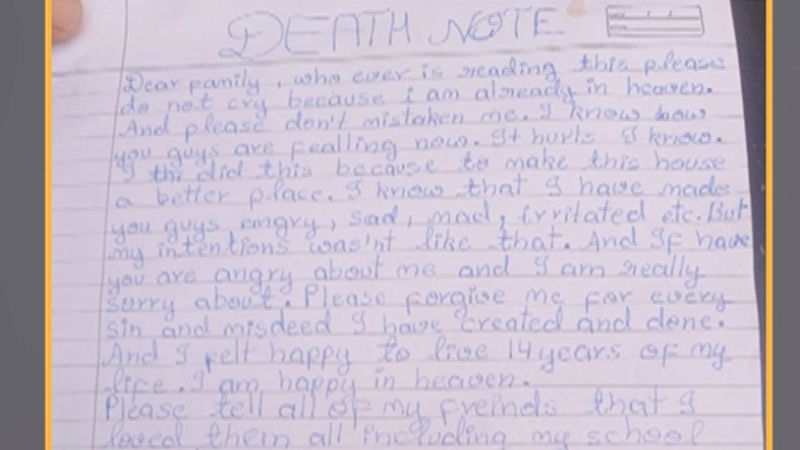 DEATH NOTE
Dear family, who ever is reading this please
do not cry because i am already in heaven.
And please don't mistaken me. I know how
you guys are fealling now. It hurts I know.
I did this because to make this house
a better place. I know that I have made
you guys angry, sad, mad, irritated etc. But
my intentions was'nt like that. And If have
you are angry about me and I am really
sorry about. Please forgive me for every
sin and misdeed I have created and done.
And I felt happy to live 14 years of my
life. I am happy in heaven.
Please tell all of my freinds that I
loved them all including my school